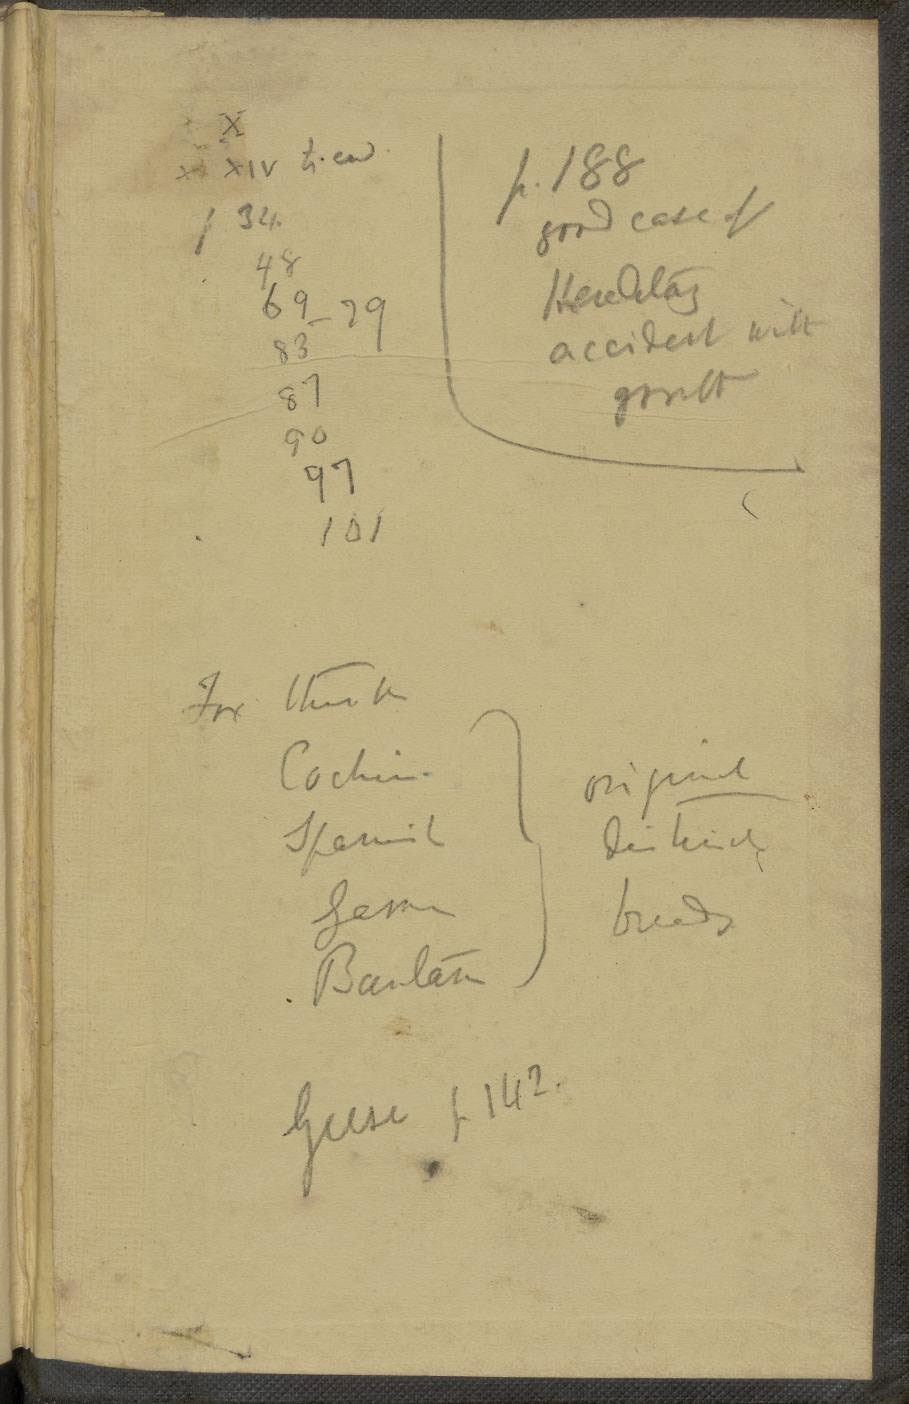 X
x XIV to end
p 34.
48
69 - 79
83
87
90
97
101
p. 188
good case of
Hereditary
accident with
growth
For think
Cochin.
Spanish
Game
Bantam
original
distinct
breeds
Geese p 142.